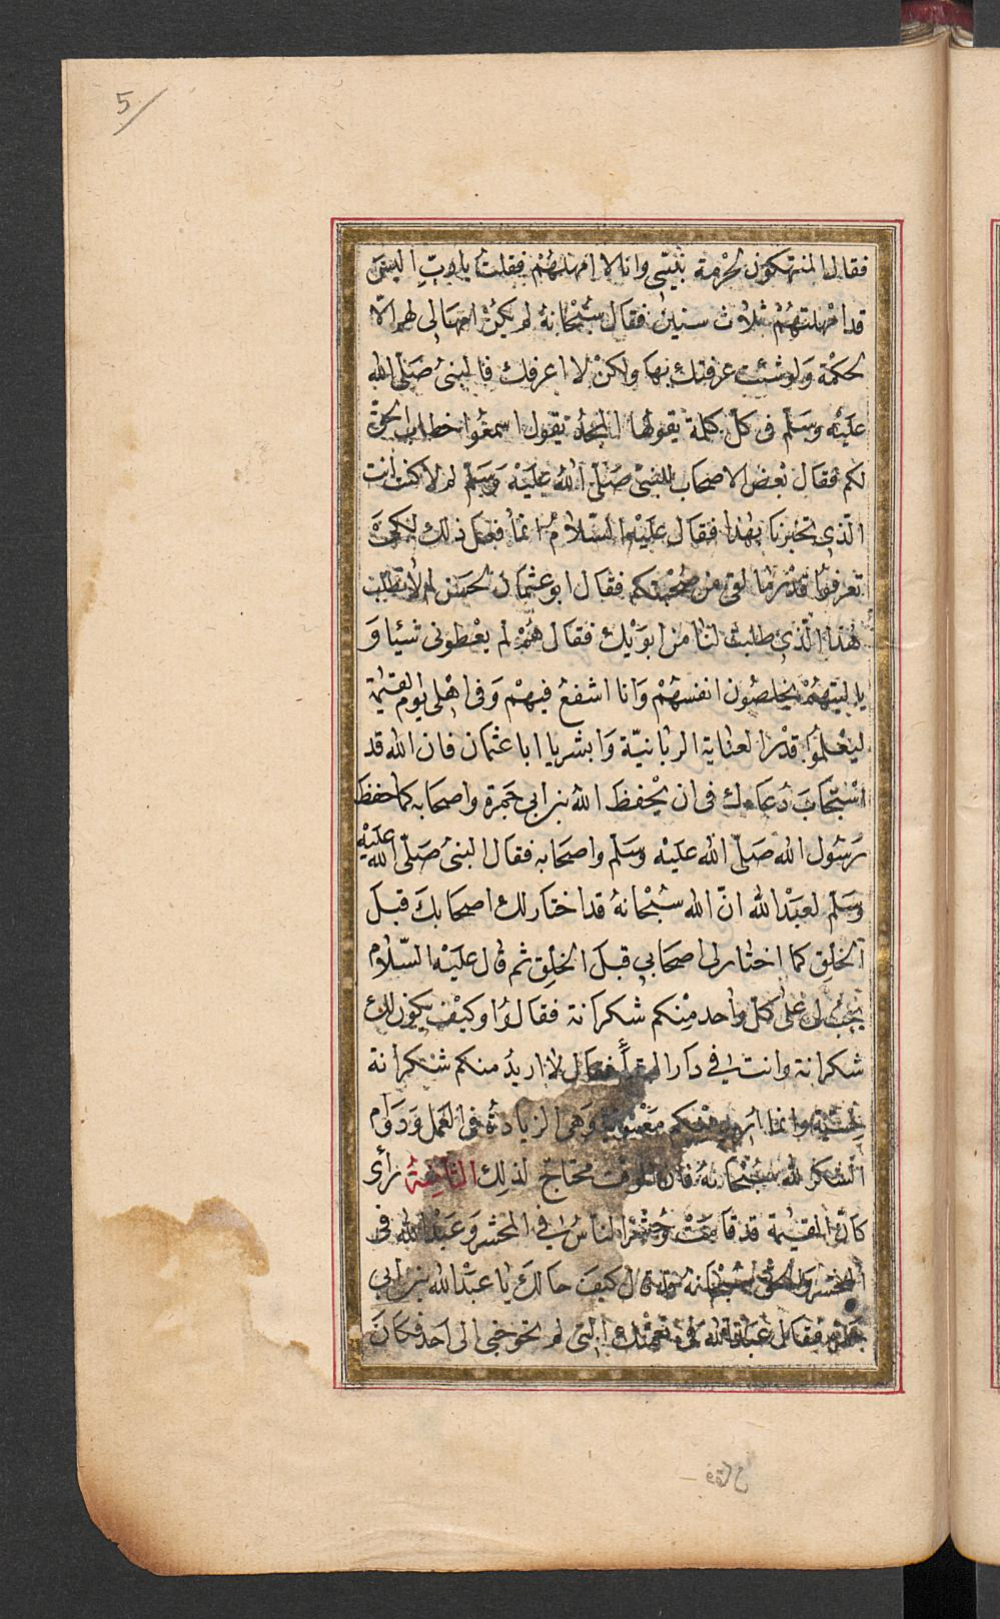 5
فقال المنتهكون لحرمة بيتي وانا لا امهلهم فقلت يا رب اليس
قد امهلتهم ثلاث سنين فقال سبحانه لم يكن امهالي لهم الا
لحكمة ولو شئت عرفتك بها ولكن لا اعرفك فالنبي صلى الله
عليه وسلم في كل كلمة يقولها يقول اسمعوا خطاب الحق
لكم فقال بعض الاصحاب للنبي صلى الله عليه وسلم لم لا كنت انت
الذي تخبرنا بهذا فقال عليه السلام انما فعل ذلك لكي
تعرفوا قدر ما لقي من صحبتكم فقال ابو عثمان الحسن لم لا
هذا الذي طلبت لنا من ابويك فقال هم لم يعطوني شيئا و
يا ليتهم يخلصون انفسهم وانا اشفع فيهم وفي اهلي يوم القيمة
ليعلموا قدر العناية الربانية وابشر يا ابا عثمان فان الله قد
استجاب دعاءك في ان يحفظ الله بن ابي جمرة واصحابه كما حفظ
رسول الله صلى الله عليه وسلم واصحابه فقال النبي صلى الله عليه
وسلم لعبد الله ان الله سبحانه قد اختار لك اصحابك قبل
الخلق كما اختار لي اصحابي قبل الخلق ثم قال عليه السلام
يجب لي على كل واحد منكم شكرانة فقالوا وكيف يكون لك
شكرانة وانت في دار البقأ فقال لا اريد منكم شكرانة
حسية وانما اريد منكم معنوية وهي الزيادة في العمل ودوام
الشكر لله سبحانه فان الوقت محتاج لذلك الثانية رأى
كان القيمة قد قامت وحشر الناس في المحشر وعبد الله في
المحشر والحق سبحانه قال كيف حالك يا عبد الله بن ابي
جمرة فقال عبد الله في نعمتك التي لم تحوجني الى احد فكان
فقال